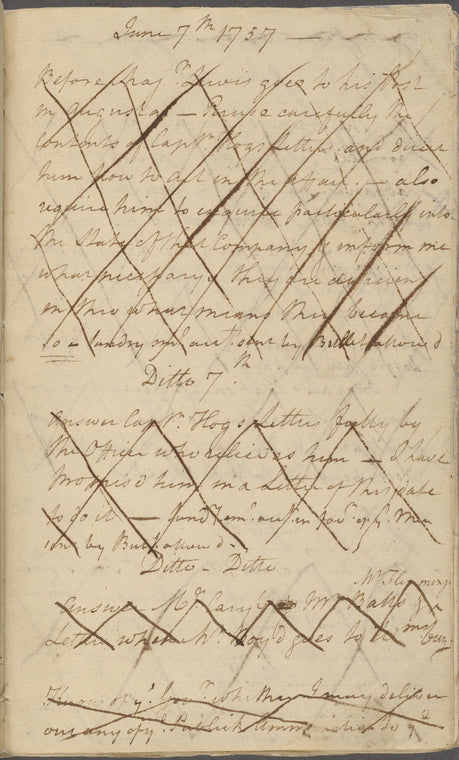 June 7th 1757
Before Maj.r Lewis goes to his Post
in Augusta — Peruse carefully the
Contents of Capt.n Hogs Letter and direct
him how to act in the affair. — also
require him to enquire particularly into
the State of that Company & inform me
what necessarys they are deficient
in & thro what means they became
so — Sundry sm.l acc.ts sent by Bullet allowed
Ditto 7.th
Answer Capt.n Hogs Letter fully by
the Officer who relieves him — I have
promis'd him in a Letter of this date
to do it — Sund.y sm.l acc.ts in fav.r of y.e Men
sent by Bull.t allow'd.
Ditto — Ditto
Mr. Flemings
Answer Mr. Carlyle & Mr. Balls &
Letter when Mr. Boyd goes to Wmsburg
Know of y.e Gov.r whether I may deliver
out any of y.e Publick Ammunition to y.e